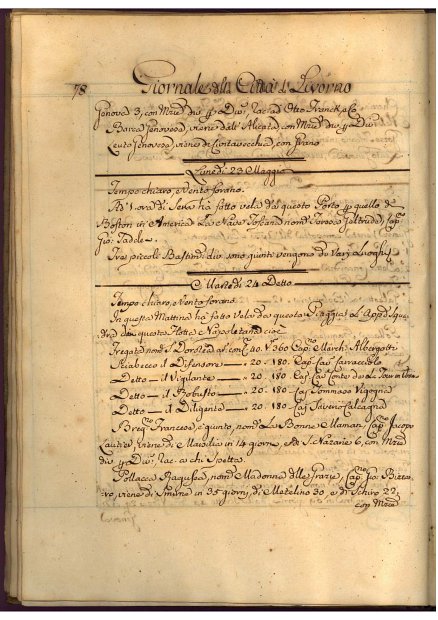 78 Giornale della Città di Livorno
Genova 3, con Merc. div. p. Div. Rac. ad Otto Franck, e Co
Barca Genovesa, viene dall' Alicata, con Merc. div. p. Div.
Leuto Genovese, viene di Civitavecchia, con Grano
Lunedì 23 Maggio
Tempo chiaro, e Vento forano.
Ad 1. ora di Sera ha fatto vela da questo Porto p. quello di
Boston in America La Nave Toscana nom. Geltrude, Cap.
Gio: Taddei.
Tre piccoli Bastim. div. sono giunti vengono da Varj Luoghi
Martedì 24 Detto
Tempo chiaro, e Vento forano.
In questa Mattina ha fatto Vela da questa Spiaggia L'Append. Squa-
dra di questa Flotta Napoletana cioè
Fregata nom. S. Dorotea di Can. 40. 360 Cap. March. Alergotti
Xiabecco il Difensore — 20. 180. Cap. Cav. Carracciolo
Detto — il Vigilante — 20. 180 Cap. Cav. Conte de La Tour
Detto — il Robusto — 20. 180. Cav. Tommaso Vigogna
Detto — il Diligente — 20. 180 Cav. Saverio Calcagna
Brig. Francese, è giunto, nom. La Bonne Maman, Cap. Jacopo
Lautier, viene di Marsilia in 14 giorni, da S. Nazario 6, con Merc.
div. p. Div. Rac. a chi Spetta.
Pollacca Ragusea, nom. Madonna delle Grazie, Cap. Gio: Bizza-
ro, viene di Smirne in 35 giorni, di Metelino 30, e di Schiro 22,
con Merc.